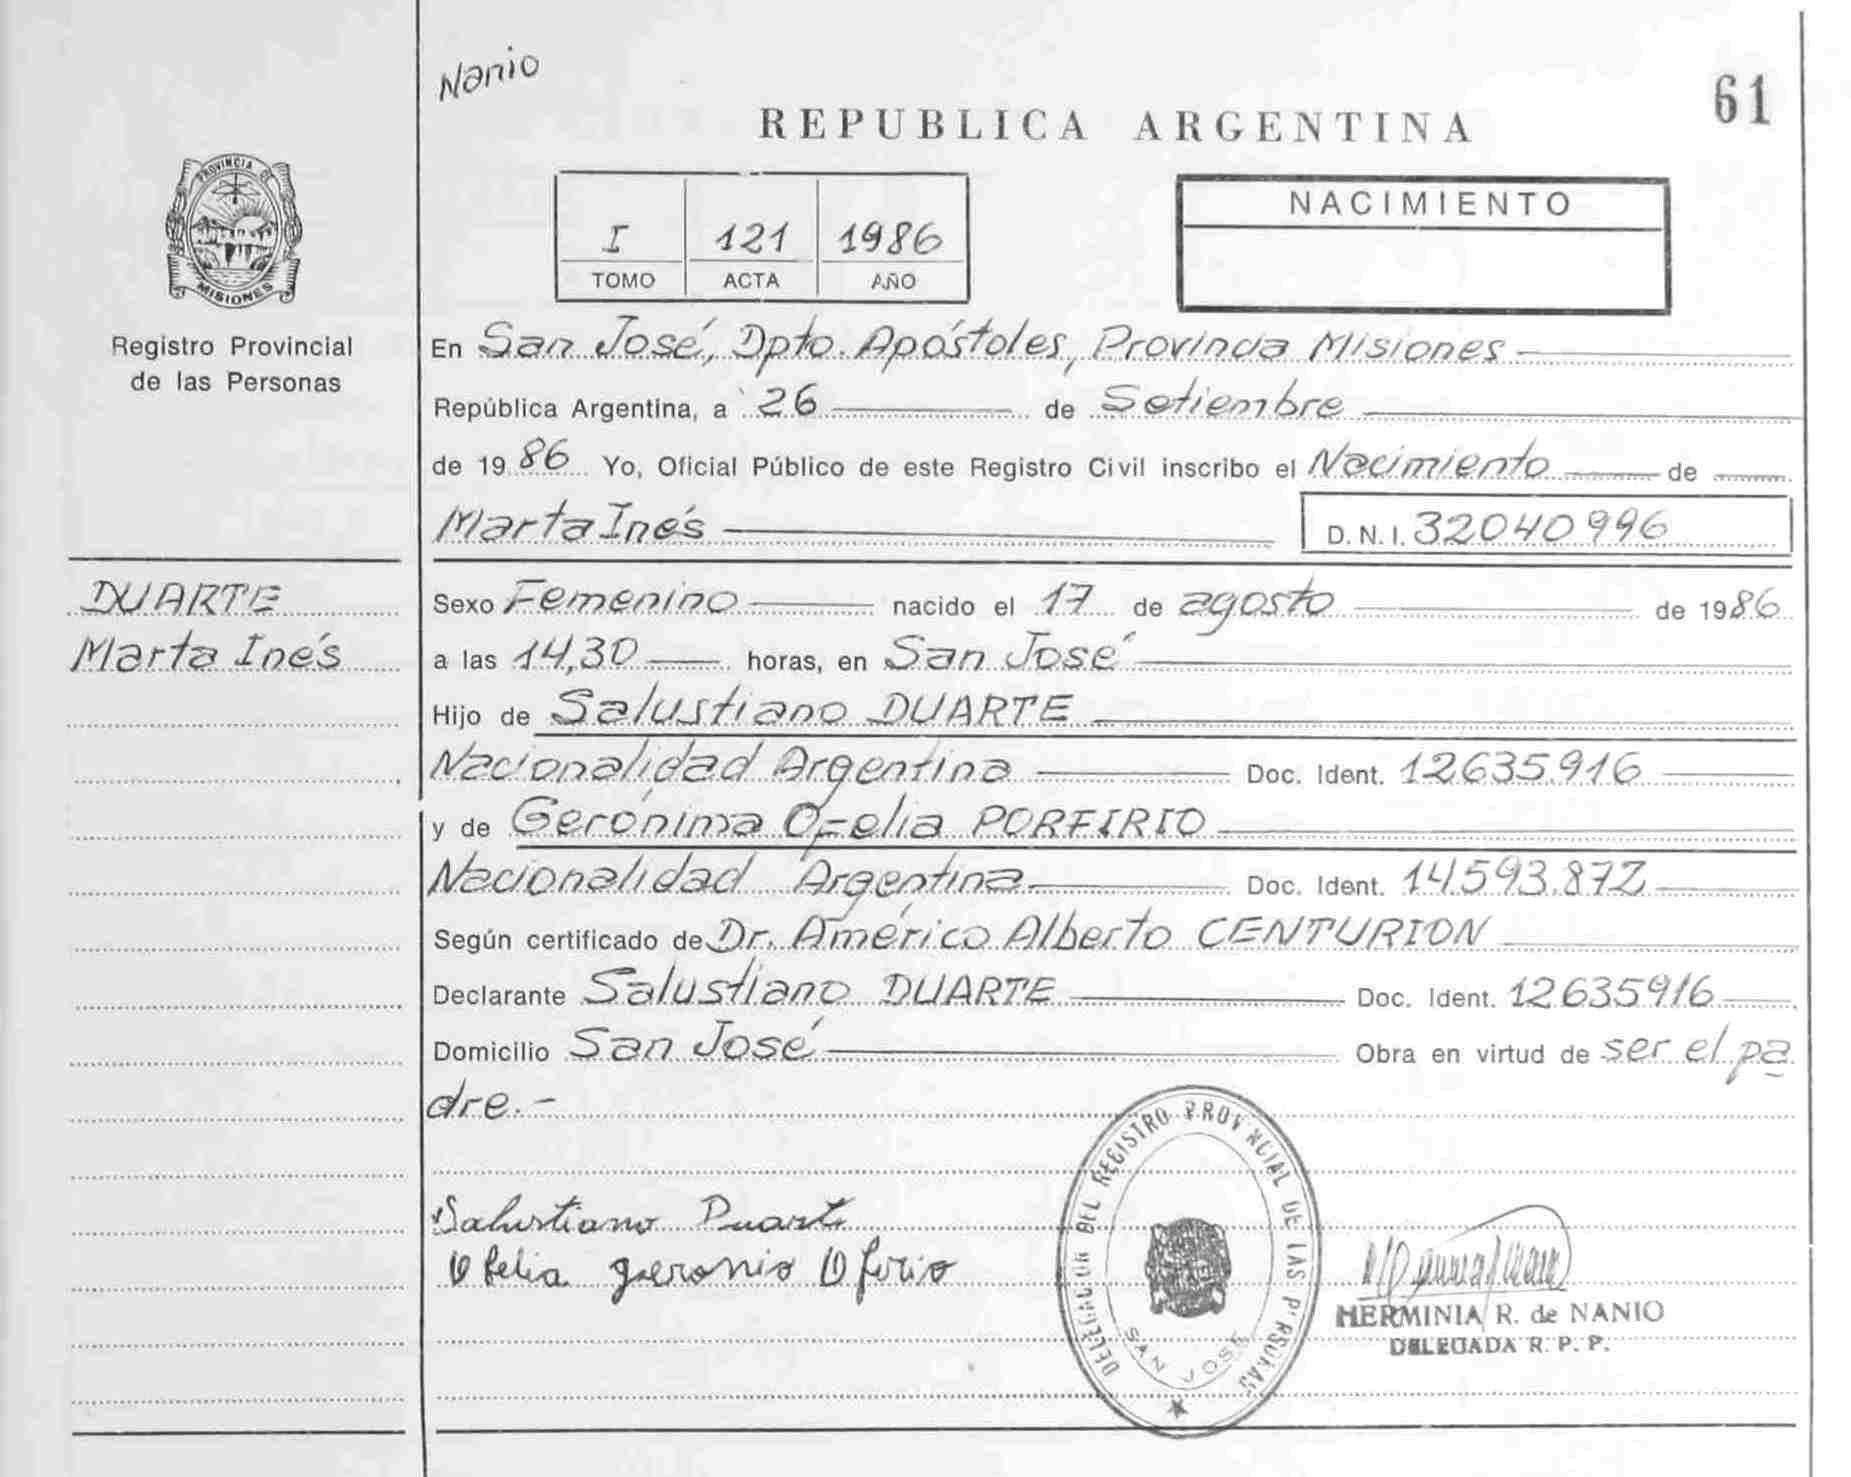 Nanio
61
REPUBLICA ARGENTINA
PROVINCIA DE
MISIONES
Registro Provincial
de las Personas
I 121 1986
TOMO ACTA AÑO
NACIMIENTO
En San José, Dpto. Apóstoles, Provincia Misiones
República Argentina, a 26 de Setiembre
de 1986 Yo, Oficial Público de este Registro Civil inscribo el Nacimiento de
Marta Inés D.N.I. 32040996
DUARTE
Marta Inés
Sexo Femenino nacido el 17 de agosto de 1986
a las 14,30 horas, en San José
Hijo de Salustiano DUARTE
Nacionalidad Argentina Doc. Ident. 12.635.916
y de Gerónima Ofelia PORFIRIO
Nacionalidad Argentina Doc. Ident. 14.593.872
Según certificado de Dr. Américo Alberto CENTURION
Declarante Salustiano DUARTE Doc. Ident. 12.635.916
Domicilio San José Obra en virtud de ser el pa
dre.-
Salustiano Duarte
Ofelia
DELEGACION DEL REGISTRO PROVINCIAL DE LAS PERSONAS
SAN JOSE
HERMINIA R. de NANIO
DELEGADA R. P. P.